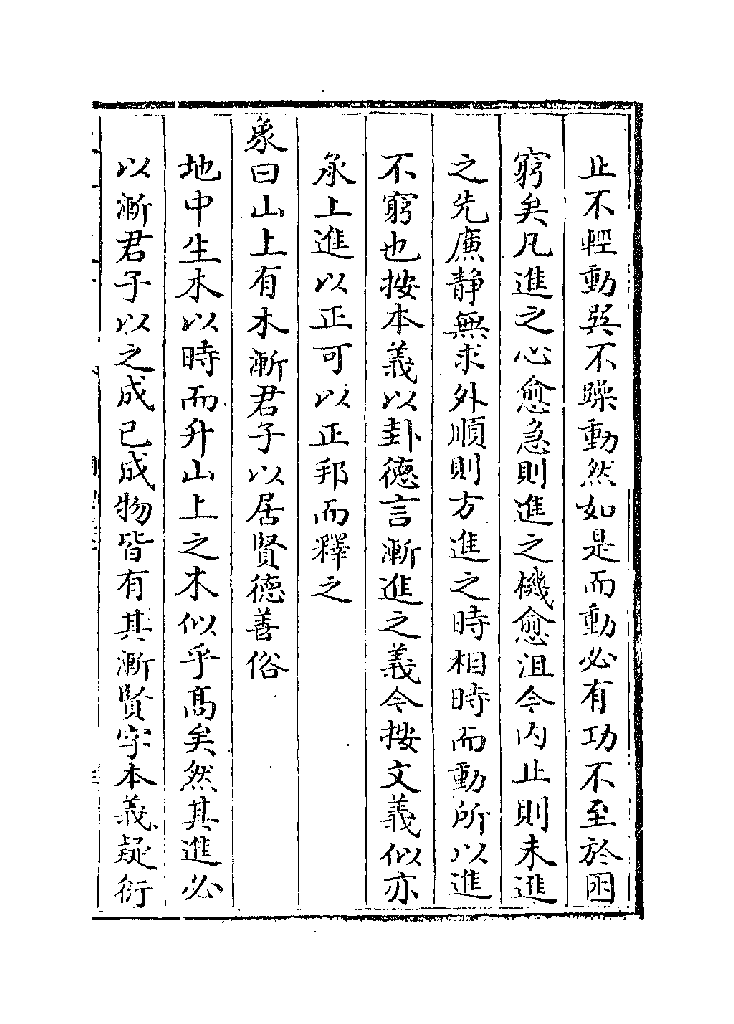 止不輕動巽不躁動然如是而動必有功不至於困
窮矣凡進之心愈急則進之機愈沮今内止則未進
之先廉靜無求外順則方進之時相時而動所以進
不窮也按本義以卦德言漸進之義今按文義似亦
承上進以正可以正邦而釋之
象曰山上有木漸君子以居賢德善俗
地中生木以時而升山上之木似乎髙矣然其進必
以漸君子以之成已成物皆有其漸賢字本義疑衍